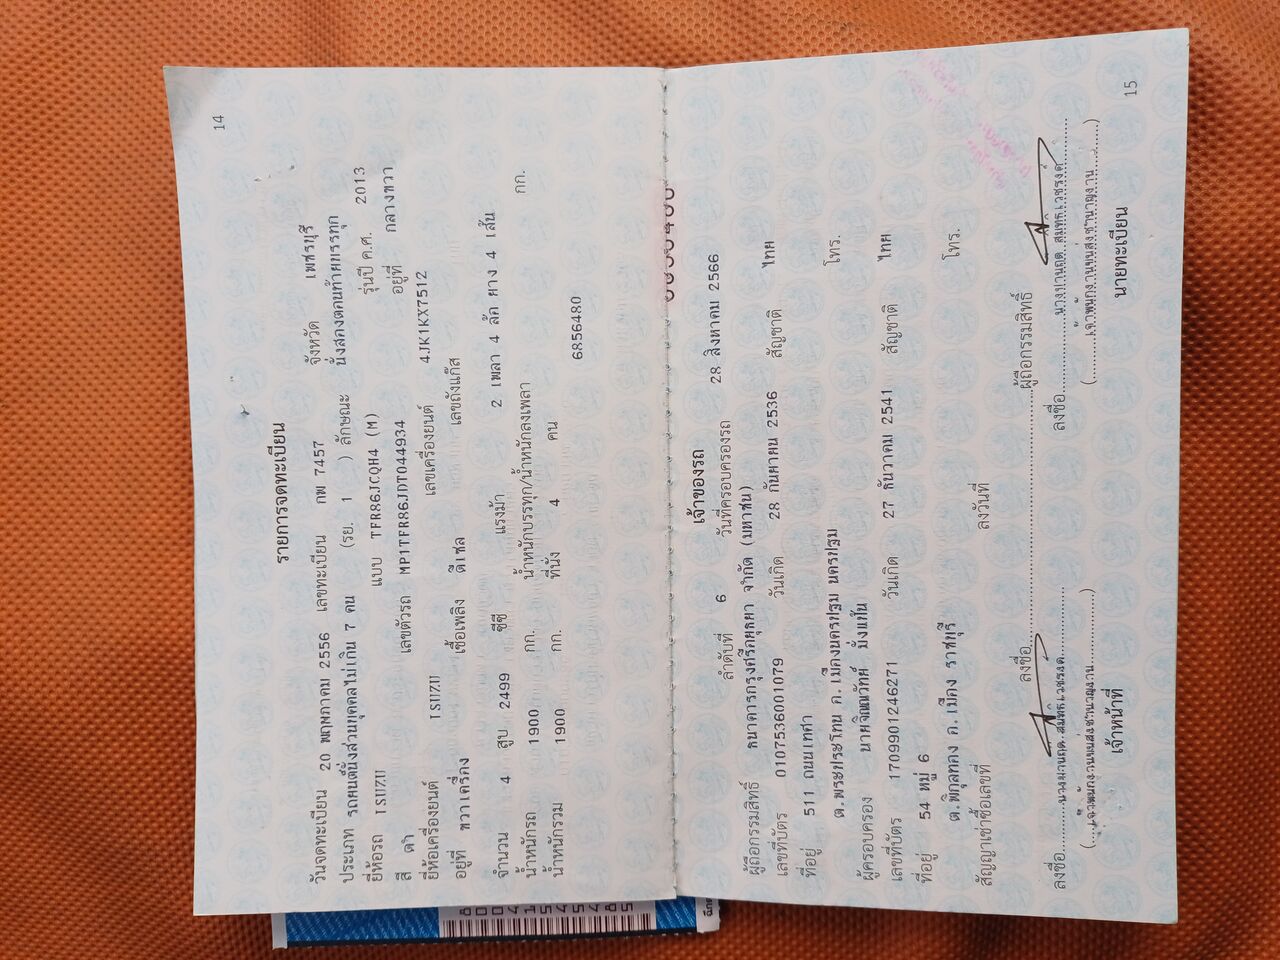 14
รายการจดทะเบียน
วันจดทะเบียน 20 พฤษภาคม 2556 เลขทะเบียน กพ 7457 จังหวัด เพชรบุรี
ประเภท รถยนต์นั่งส่วนบุคคลไม่เกิน 7 คน (รย. 1 ) ลักษณะ นั่งสองตอนท้ายบรรทุก
ยี่ห้อรถ ISUZU แบบ TFR86JCQH4 (M) รุ่นปี ค.ศ. 2013
สี ดำ เลขตัวรถ MP1TFR86JDT044934 อยู่ที่ กลางขวา
ยี่ห้อเครื่องยนต์ ISUZU เลขเครื่องยนต์ 4JK1KX7512
อยู่ที่ ขวาเครื่อง เชื้อเพลิง ดีเซล เลขถังแก๊ส
จำนวน 4 สูบ 2499 ซีซี แรงม้า 2 เพลา 4 ล้อ ยาง 4 เส้น
น้ำหนักรถ 1900 กก. น้ำหนักบรรทุก/น้ำหนักลงเพลา กก.
น้ำหนักรวม 1900 กก. ที่นั่ง 4 คน
6856480
เจ้าของรถ
ลำดับที่ 6 วันที่ครอบครองรถ 28 สิงหาคม 2566
ผู้ถือกรรมสิทธิ์ ธนาคารกรุงศรีอยุธยา จำกัด (มหาชน)
เลขที่บัตร 0107536001079 วันเกิด 28 กันยายน 2536 สัญชาติ ไทย
ที่อยู่ 511 ถนนเทศา
ต.พระประโทน อ.เมืองนครปฐม นครปฐม โทร.
ผู้ครอบครอง นายจิณณวัทย์ มั่งแท่น
เลขที่บัตร 1709901246271 วันเกิด 27 ธันวาคม 2541 สัญชาติ ไทย
ที่อยู่ 54 หมู่ 6
ต.พิกุลทอง อ.เมือง ราชบุรี โทร.
สัญญาเช่าซื้อเลขที่ ลงวันที่
ลงชื่อ ผู้ถือกรรมสิทธิ์
ลงชื่อ ลงชื่อ
(เจ้าพนักงานขนส่งชำนาญงาน) (เจ้าพนักงานขนส่งชำนาญงาน)
เจ้าหน้าที่ นายทะเบียน
15